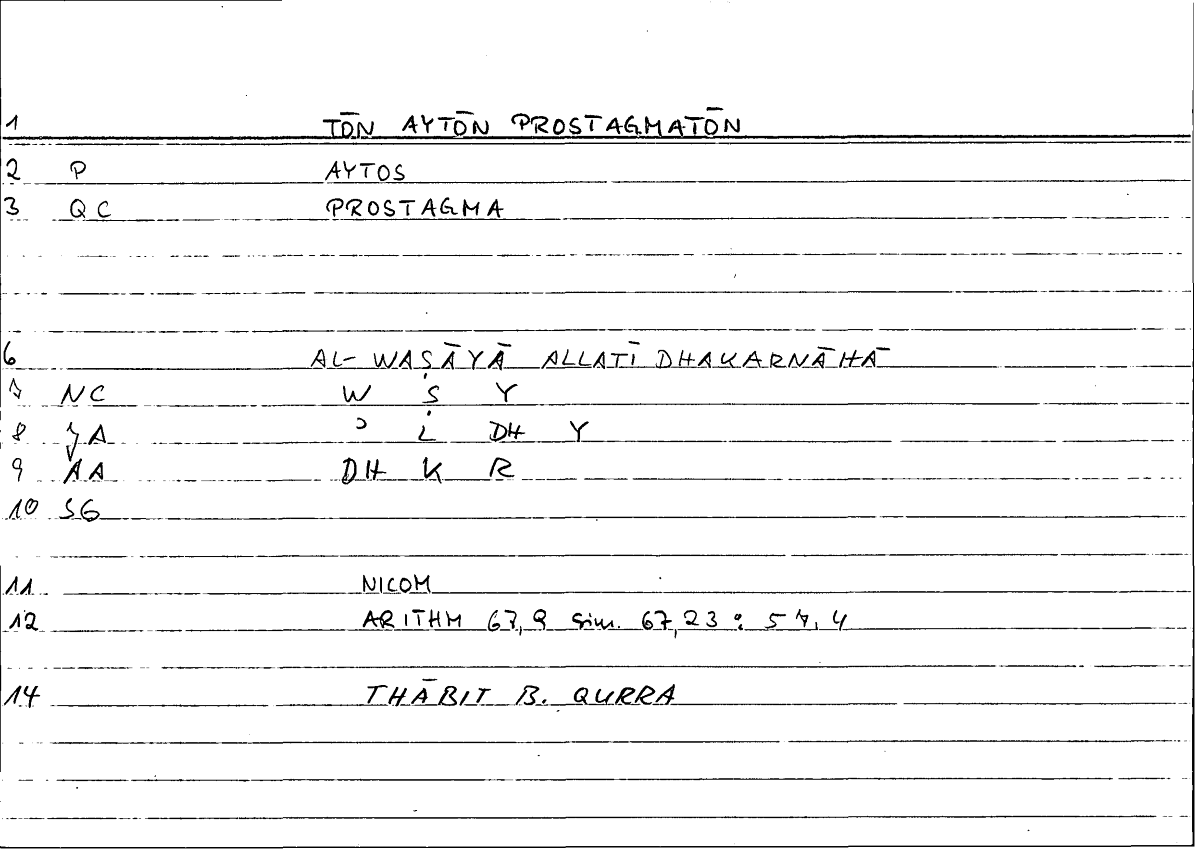 1 TŌN AYTŌN PROSTAGMATŌN
2 P AYTOS
3 QC PROSTAGMA
6 AL-WAṢĀYĀ ALLATĪ DHAKARNĀHĀ
7 NC W Ṣ Y
8 JA ʾ L DH Y
9 AA DH K R
10 SG
11 NICOM
12 ARITHM 67,9 sim. 67,23 : 57,4
14 THĀBIT B. QURRA